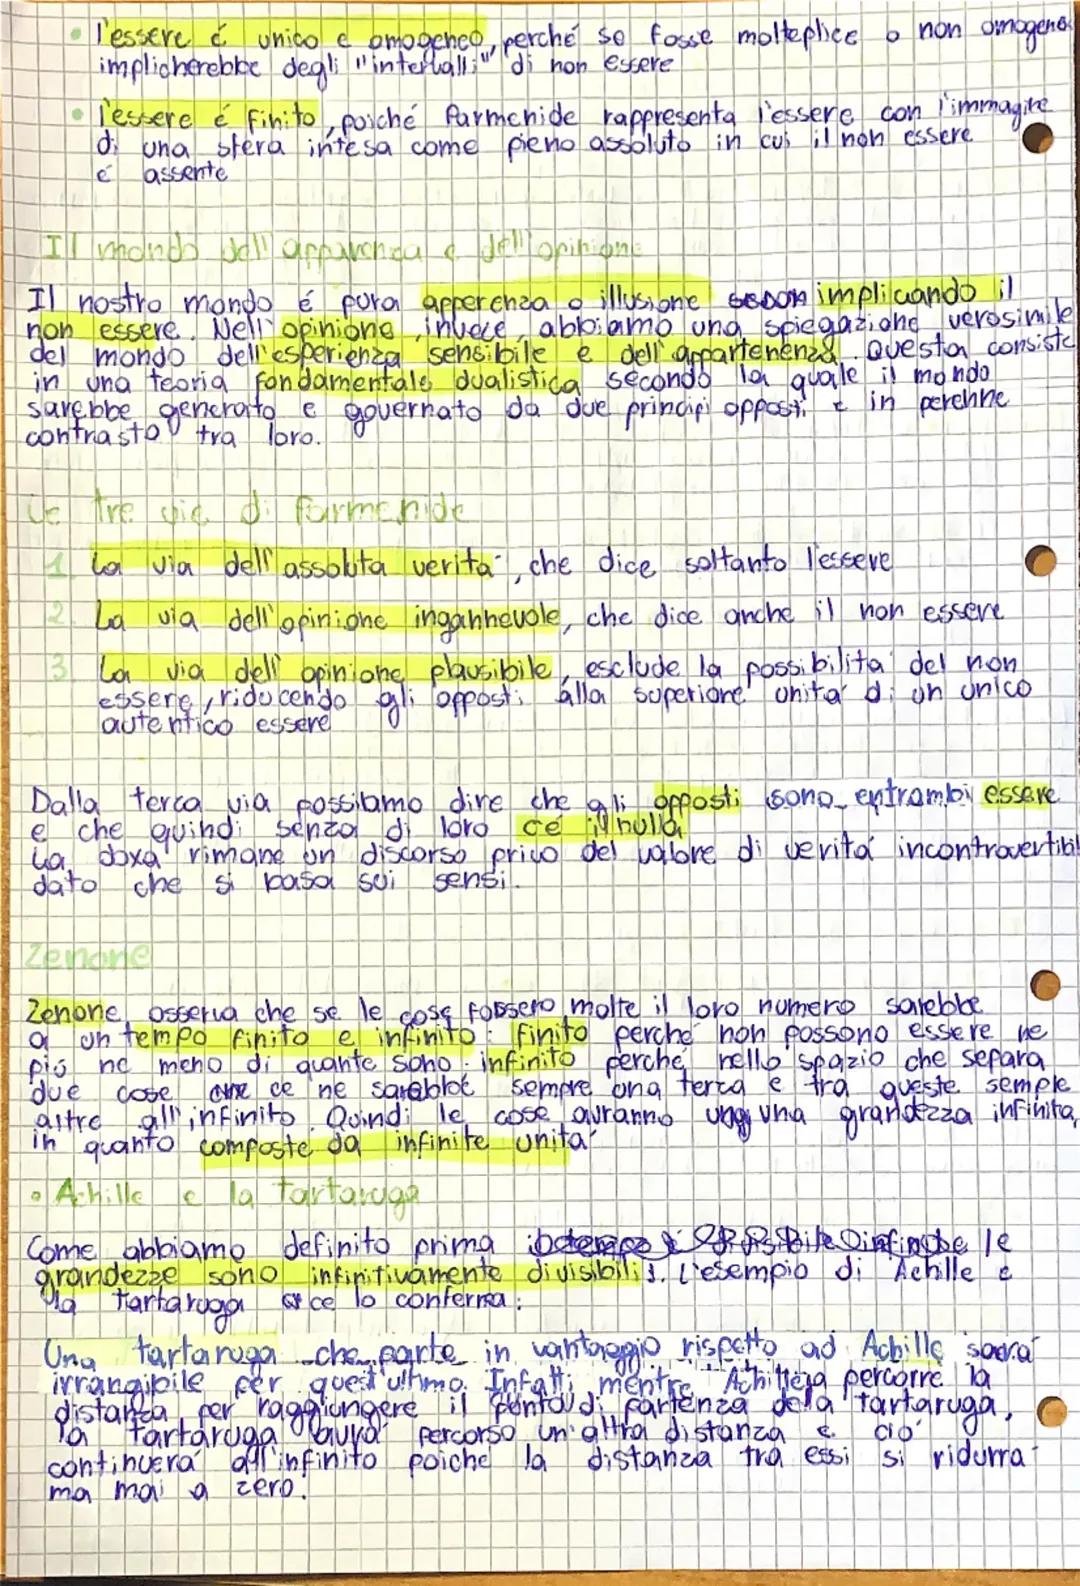 • l'essere é unico e omogeneo, perché se fosse molteplice o non omogeneo
implicherebbe degli "intervalli" di non essere
• l'essere é finito, poiché Parmenide rappresenta l'essere con l'immagine
di una sfera intesa come pieno assoluto in cui il non essere
é assente
Il mondo dell'apparenza e dell'opinione
Il nostro mondo é pura apperenza o illusione implicando il
non essere. Nell'opinione, invece, abbiamo una spiegazione verosimile
del mondo dell'esperienza sensibile e dell'appartenenza. Questa consiste
in una teoria fondamentale dualistica secondo la quale il mondo
sarebbe generato e governato da due principi opposti e in perenne
contrasto tra loro.
Le tre vie di Parmenide
1. La via dell'assoluta verita', che dice soltanto l'essere
2. La via dell'opinione ingannevole, che dice anche il non essere
3. La via dell'opinione plausibile, esclude la possibilita' del non
essere, riducendo gli opposti alla superiore unita' di un unico
autentico essere
Dalla terza via possiamo dire che gli opposti sono entrambi essere
e che quindi senza di loro c'é il nulla
La doxa rimane un discorso privo del valore di veritá incontrovertibil
dato che si basa sui sensi.
Zenone
Zenone osserva che se le cose fossero molte il loro numero sarebbe
a un tempo finito e infinito: finito perché non possono essere ne
piú ne meno di quante sono. infinito perché nello spazio che separa
due cose ce ne sarebbe sempre una terza e tra queste semple
altre all'infinito. Quindi le cose avranno una grandezza infinita,
in quanto composte da infinite unita'
• Achille e la tartaruga
Come abbiamo definito prima le
grandezze sono infinitivamente divisibili. L'esempio di Achille e
la tartaruga ce lo conferma:
Una tartaruga che parte in vantaggio rispetto ad Achille sara'
irrangibile per quest'ultimo. Infatti mentre Achille percorre la
distanza per raggiungere il punto di partenza della tartaruga,
la tartaruga avra' percorso un'altra distanza e cio'
continuera' all'infinito poiche' la distanza tra essi si ridurra'
ma mai a zero.